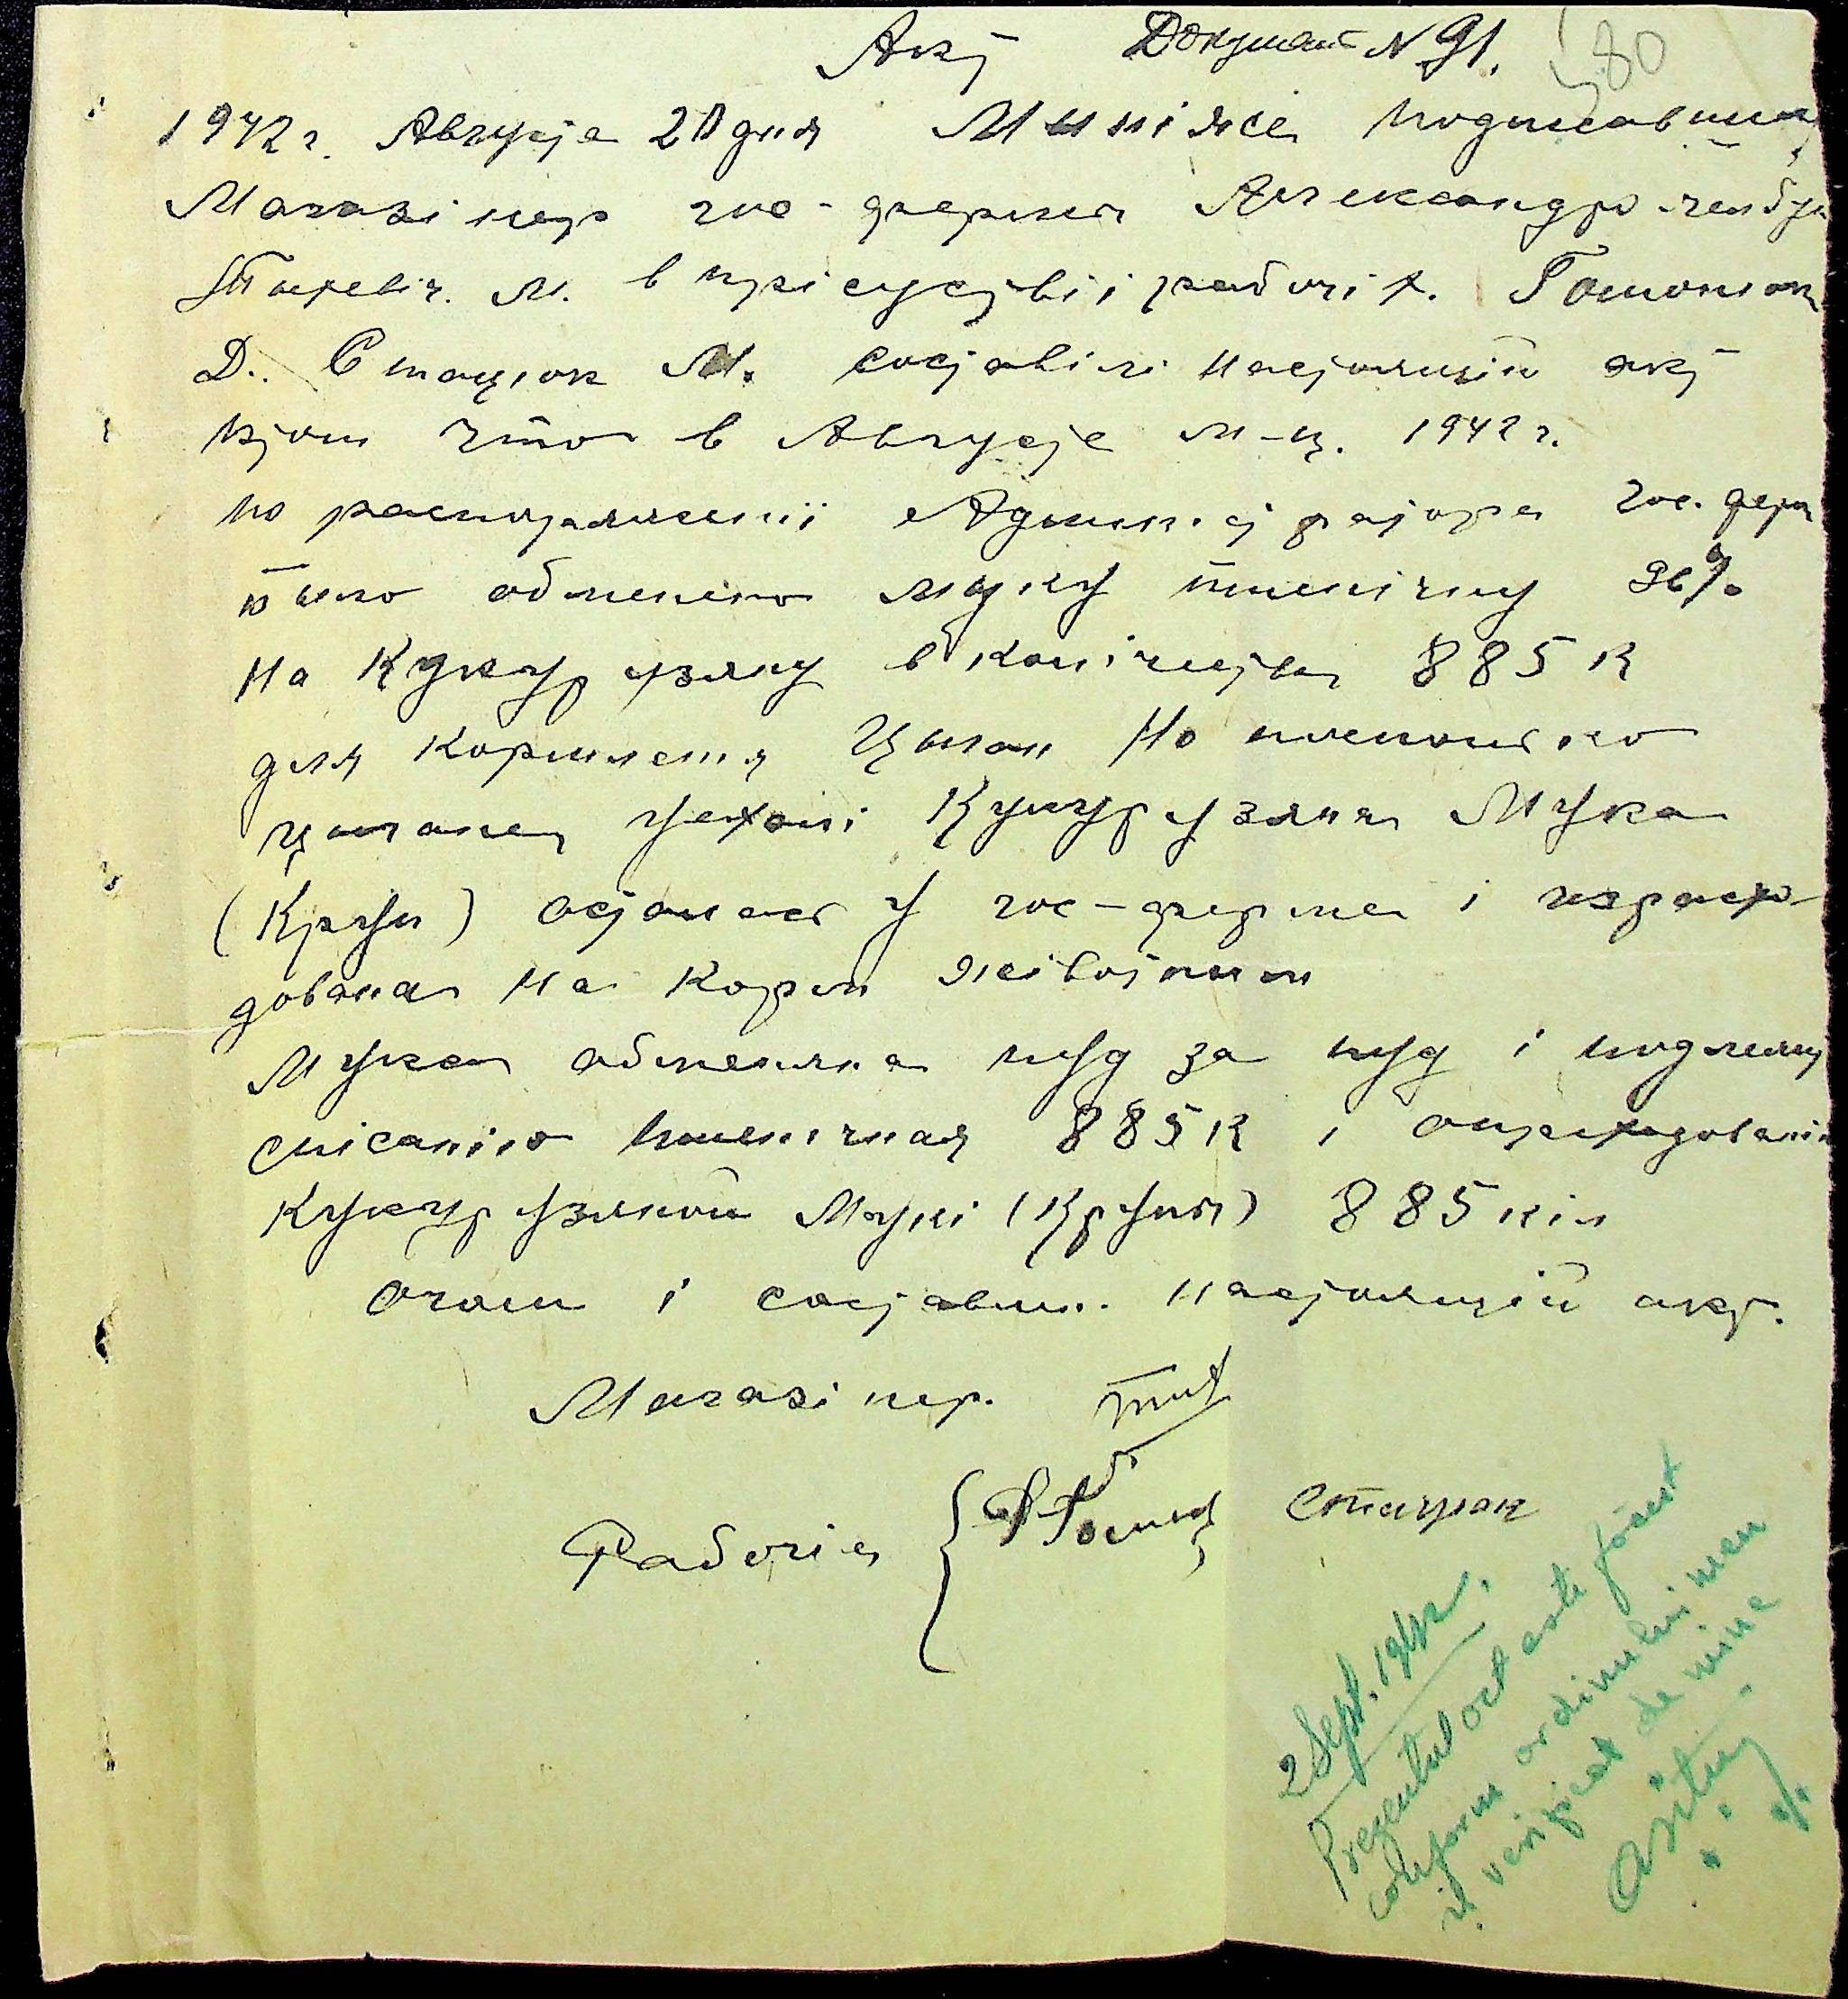 Акт Документ N 91. 80
1942 г. Августа 20 дня Мы ніже подписавши
Магазінер гос-фермы Александро-
М. в прісутствіі рабочіх. Гоманюк
Д. Стацюк М. составілі настоящій акт
втом что в Августе м-ц. 1942 г.
по распоряженіі Администратора гос. ферм
было обменено муку пшенічну 96%
на кукурузяну в колічества 885 к
для кормленія Цыган Но посколько
цыгане уехалі Кукурузяна Мука
(Крупа) осталась у гос-ферме і израсхо-
дована на корм жівотным
Мука обменяна пуд за пуд і подлежит
спісанію пшенічная 885 к і оприходованію
кукурузяной Мукі (Крупы) 885 кіл
очом і составлен. настоящій акт.
Магазінер.
Рабочіе Стацюк
2 Sept. 1942.
Prezentul act este făcut
conform ordinului meu
și verificat de mine